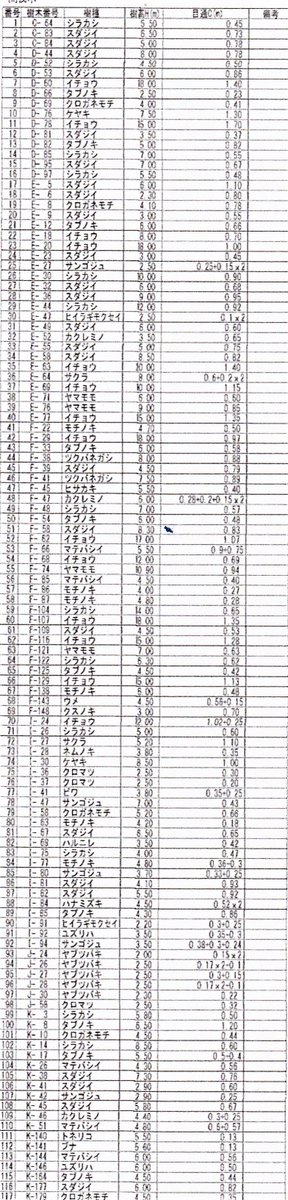 番号 樹木番号 樹種 樹高H(m) 目通C(m) 備考
1 C- 64 シラカシ 5.50 0.45
2 C- 83 スダジイ 6.50 0.73
3 C- 84 スダジイ 5.00 0.78
4 D- 44 スダジイ 8.00 0.73
5 D- 52 シラカシ 4.50 0.50
6 D- 53 スダジイ 6.00 0.86
7 D- 60 イチョウ 18.00 1.40
8 D- 66 タブノキ 2.50 0.23
9 D- 69 クロガネモチ 4.00 0.41
10 D- 76 ケヤキ 7.50 1.30
11 D- 78 イチョウ 15.00 1.70
12 D- 81 スダジイ 3.50 0.37
13 D- 82 タブノキ 5.00 0.82
14 D- 85 シラカシ 7.00 0.55
15 D- 95 スダジイ 7.00 0.67
16 D- 97 シラカシ 5.50 0.48
17 E- 5 スダジイ 6.00 1.10
18 E- 6 スダジイ 2.30 0.80
19 E- 8 クロガネモチ 4.10 0.78
20 E- 9 スダジイ 3.00 0.55
21 E- 12 タブノキ 6.00 0.66
22 E- 18 イチョウ 8.00 0.70
23 E- 20 イチョウ 18.00 1.00
24 E- 23 スダジイ 3.00 0.45
25 E- 27 サンゴジュ 2.50 0.25+0.15×2
26 E- 30 シラカシ 10.00 0.90
27 E- 32 スダジイ 6.00 0.68
28 E- 36 スダジイ 9.00 0.95
29 E- 44 シラカシ 12.00 0.92
30 E- 47 ヒイラギモクセイ 2.50 0.1×2
31 E- 49 スダジイ 6.00 0.60
32 E- 52 カクレミノ 3.50 0.65
33 E- 55 スダジイ 5.00 0.75
34 E- 58 スダジイ 8.50 0.82
35 E- 63 イチョウ 10.00 1.40
36 E- 64 サクラ 8.00 0.6+0.2×2
37 E- 69 イチョウ 10.00 1.15
38 E- 74 ヤマモモ 6.00 0.60
39 E- 76 ヤマモモ 9.00 0.85
40 E- 77 イチョウ 15.00 1.35
41 F- 22 モチノキ 4.70 0.50
42 F- 29 イチョウ 18.00 0.97
43 F- 33 タブノキ 6.00 0.58
44 F- 38 ツクバネガシ 8.00 0.88
45 F- 39 スダジイ 4.50 0.79
46 F- 41 ツクバネガシ 7.50 0.89
47 F- 45 ヒサカキ 5.50 0.40
48 F- 47 カクレミノ 6.00 0.28+0.2+0.15×2
49 F- 48 シラカシ 7.00 0.57
50 F- 54 タブノキ 6.00 0.48
51 F- 58 スダジイ 8.30 0.83
52 F- 62 イチョウ 17.00 1.07
53 F- 66 マテバシイ 5.50 0.9+0.75
54 F- 68 イチョウ 12.00 0.69
55 F- 74 ヤマモモ 10.90 0.94
56 F- 85 マテバシイ 4.50 0.40
57 F- 86 モチノキ 4.00 0.27
58 F- 87 モチノキ 4.80 0.28
59 F-104 シラカシ 14.00 0.65
60 F-107 イチョウ 18.00 1.35
61 F-109 スダジイ 4.50 0.53
62 F-116 イチョウ 15.00 1.28
63 F-121 ヤマモモ 7.00 0.63
64 F-122 シラカシ 6.30 0.62
65 F-125 タブノキ 4.50 0.42
66 F-129 イチョウ 15.00 1.13
67 F-138 モチノキ 6.00 0.48
68 F-143 ウメ 4.50 0.56+0.15
69 F-148 クスノキ 3.00 0.70
70 I- 24 イチョウ 12.00 1.02+0.25
71 I- 26 シラカシ 5.00 0.60
72 I- 27 サクラ 5.20 1.10
73 I- 28 ネムノキ 3.80 0.35
74 I- 30 ケヤキ 8.50 1.00
75 I- 36 クロマツ 2.50 0.30
76 I- 37 クロマツ 2.50 0.20
77 I- 41 ビワ 3.80 0.35+0.25
78 I- 47 サンゴジュ 7.00 0.43
79 I- 58 クロガネモチ 5.20 0.66
80 I- 63 モチノキ 4.20 0.18
81 I- 67 スダジイ 6.50 0.65
82 I- 69 ハルニレ 3.50 0.42
83 I- 75 シラカシ 4.00 0.47
84 I- 77 モチノキ 4.80 0.36+0.3
85 I- 80 サンゴジュ 3.70 0.33+0.25
86 I- 81 スダジイ 4.10 0.93
87 I- 82 スダジイ 5.50 0.92
88 I- 84 ハナミズキ 4.50 0.52×2
89 I- 85 タブノキ 4.30 0.86
90 I- 91 ヒイラギモクセイ 2.20 0.3+0.25
91 I- 92 ユズリハ 3.50 0.35+0.3
92 I- 94 サンゴジュ 3.50 0.38+0.3+0.24
93 J- 24 ヤブツバキ 2.00 0.15×2
94 J- 26 ヤブツバキ 2.50 0.17×2+0.1
95 J- 27 ヤブツバキ 2.50 0.3+0.15
96 J- 28 ヤブツバキ 2.50 0.17×2+0.1
97 J- 30 ヤブツバキ 2.30 0.22
98 J- 58 クロマツ 2.50 0.32
99 K- 3 シラカシ 5.80 0.50
100 K- 8 タブノキ 6.50 1.20
101 K- 10 クロガネモチ 4.50 0.44
102 K- 14 シラカシ 8.50 0.60
103 K- 17 タブノキ 5.50 0.5+0.4
104 K- 26 マテバシイ 4.30 0.56
105 K- 38 スダジイ 7.30 0.76
106 K- 41 スダジイ 2.90 0.60
107 K- 42 サンゴジュ 2.90 0.25
108 K- 45 スダジイ 5.80 0.67
109 K- 46 カクレミノ 4.40 0.3+0.25
110 K- 51 マテバシイ 4.80 0.6+0.57
111 K-140 トネリコ 5.50 0.13
112 K-141 ブナ 5.60 0.13
113 K-144 マテバシイ 6.00 0.56
114 K-146 ユズリハ 6.00 0.50
115 K-164 タブノキ 4.50 0.44
116 K-177 スダジイ 6.50 0.82
117 K-179 クロガネモチ